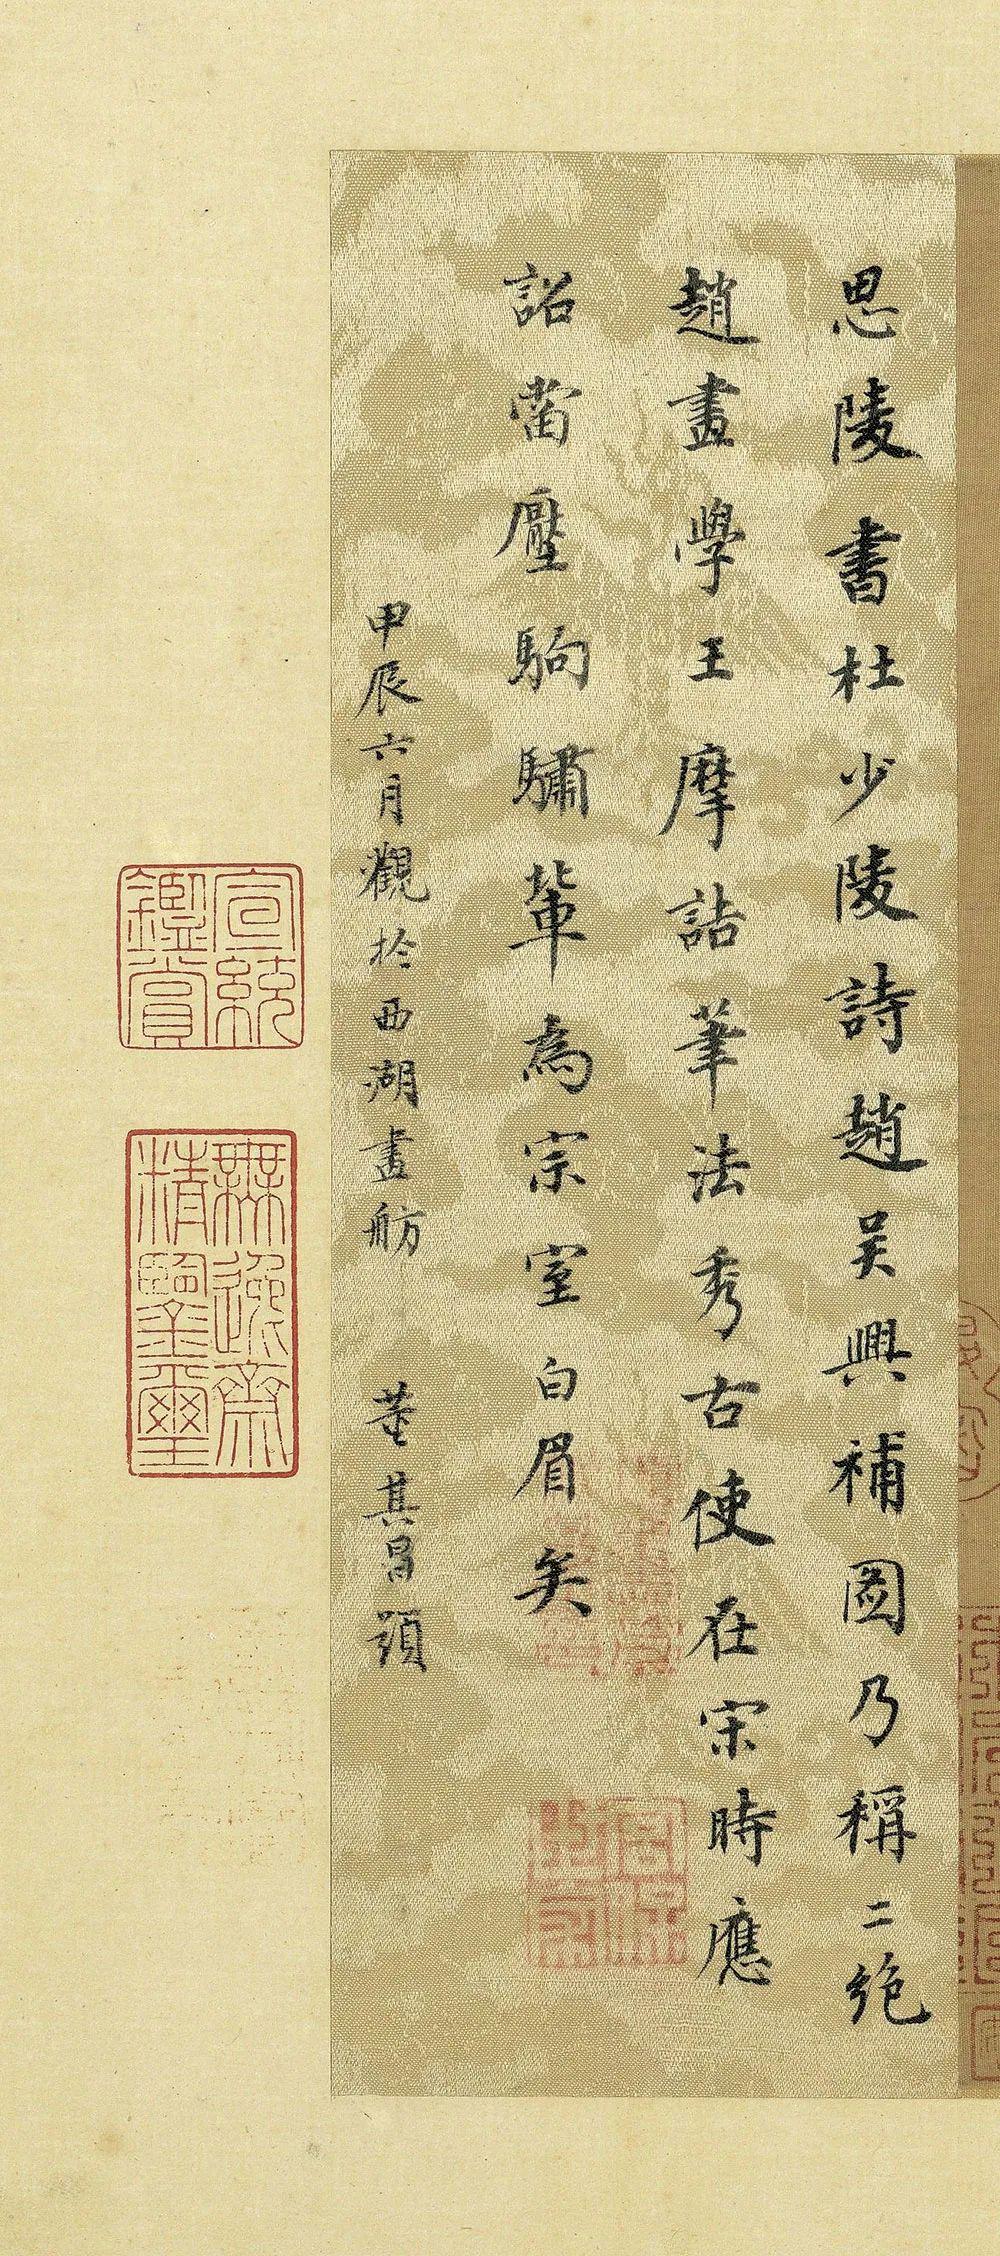 思陵書杜少陵詩趙吴興補圖乃稱二絶
趙畫學王摩詰筆法秀古使在宋時應
詔當壓駒驌輩為宗室白眉矣
甲辰六月觀於西湖畫舫 董其昌題
宣統鑑賞
無逸齋精鑒璽